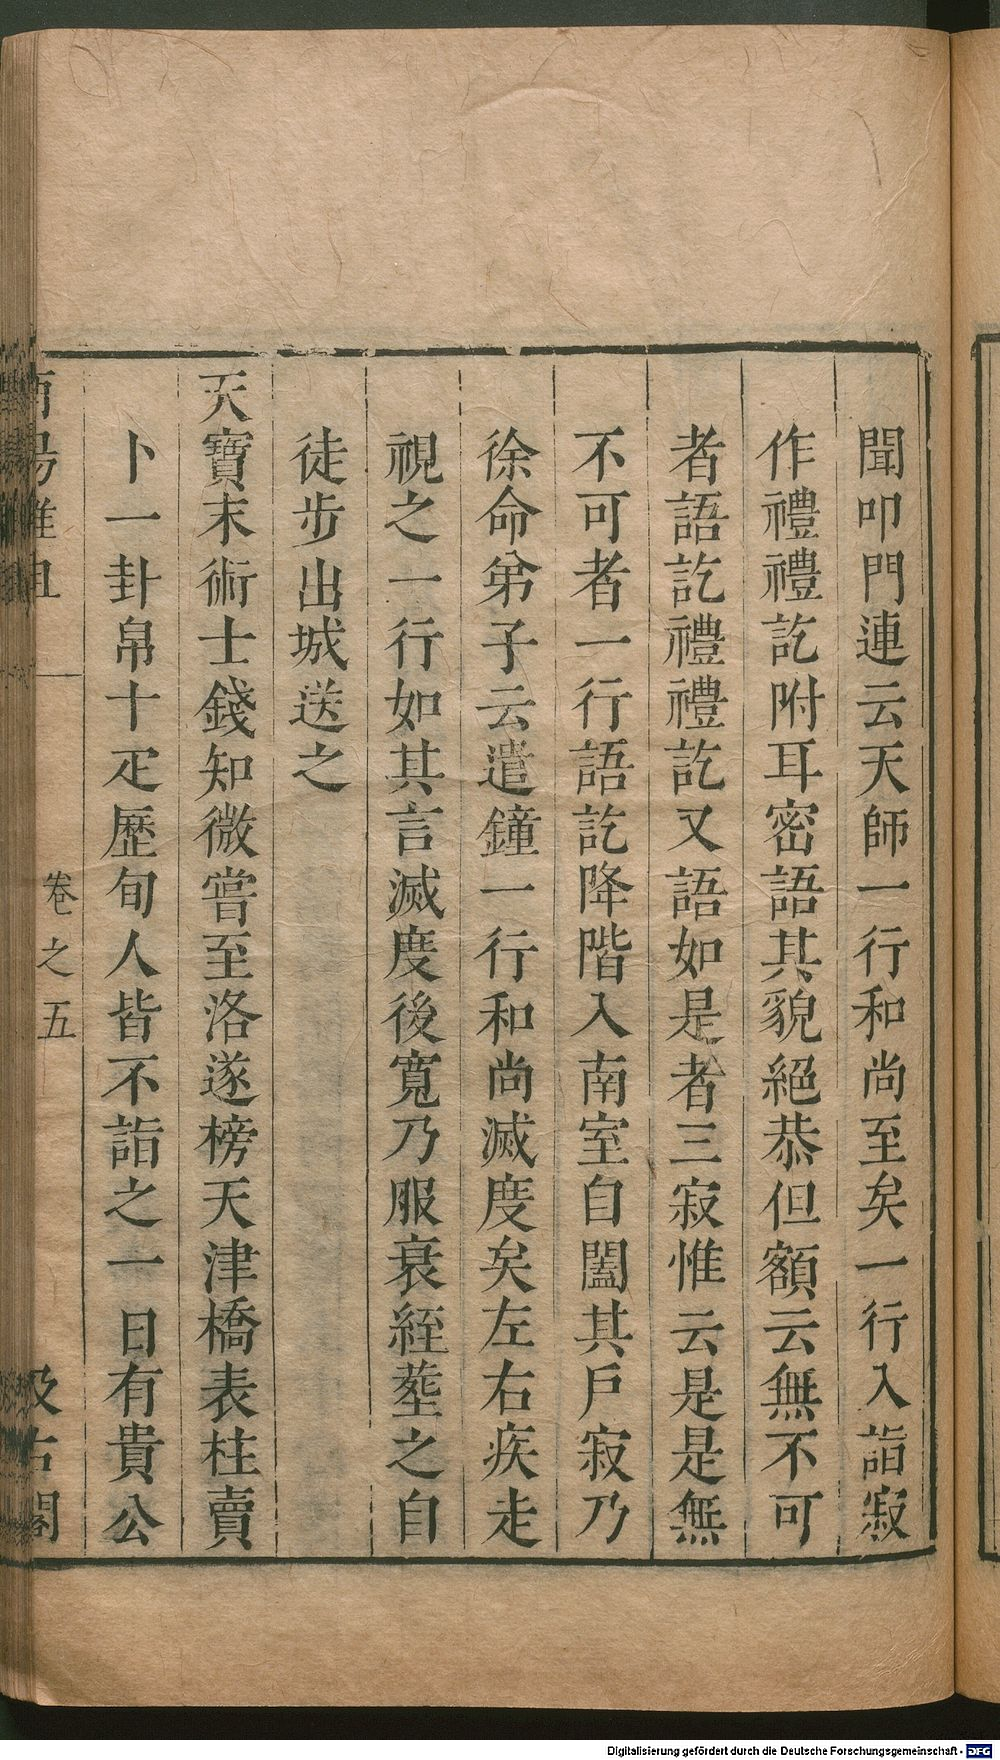 聞叩門連云天師一行和尚至矣一行入詣寂
作禮禮訖附耳密語其貌絕恭但額云無不可
者語訖禮禮訖又語如是者三寂惟云是是無
不可者一行語訖降階入南室自闔其戶寂乃
徐命弟子云遣鐘一行和尚滅度矣左右疾走
視之一行如其言滅度後寬乃服衰絰葬之自
徒步出城送之
天寶末術士錢知微嘗至洛遂榜天津橋表柱賣
卜一卦帛十疋歷旬人皆不詣之一日有貴公
酉陽雜俎
卷之五
汲古閣
Digitalisierung gefördert durch die Deutsche Forschungsgemeinschaft - DFG